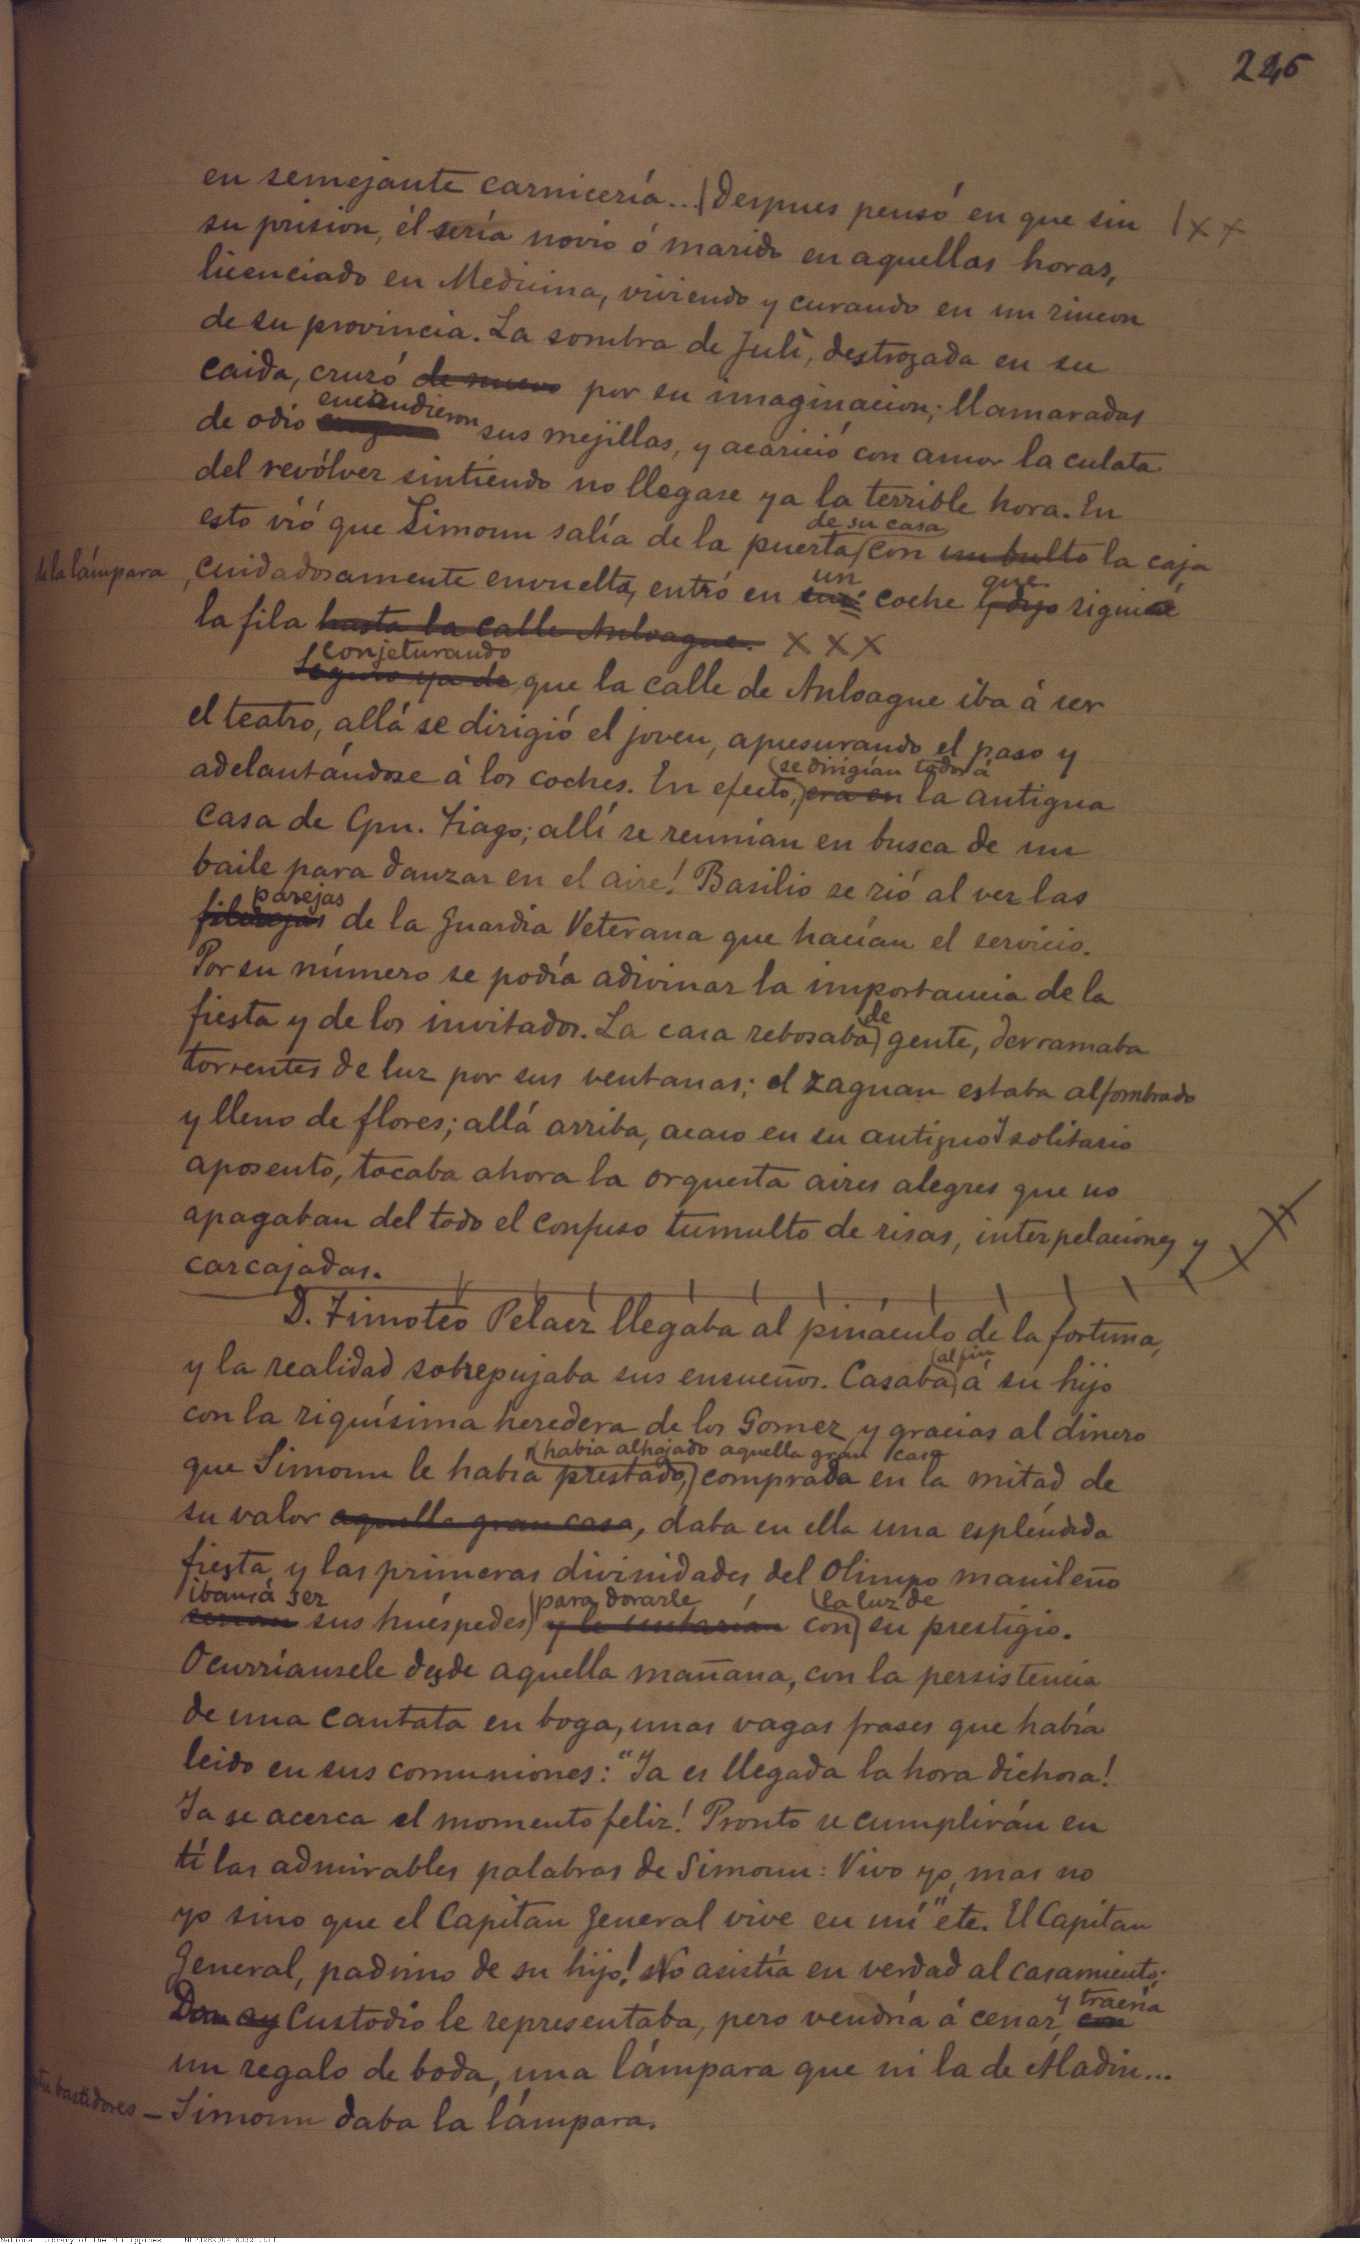 246
en semejante carnicería... Despues pensó en que sin
su prision, él sería novio ó marido en aquellas horas,
licenciado en Medicina, viviendo y curando en un rincon
de su provincia. La sombra de Julî, destrozada en su
caida, cruzó de nuevo por su imaginacion; llamaradas
encendieron
de odio sus mejillas, y acarició con amor la culata
del revólver sintiendo no llegase ya la terrible hora. En
de su casa
esto vió que Simoun salía de la puerta con un bulto la caja
de la lámpara
cuidadosamente envuelta, entró en coche siguió
un que
la fila hasta la calle Anloague. X X X
conjeturando
Seguro ya de que la calle de Anloague iba á ser
el teatro, allá se dirigió el joven, apresurando el paso y
se dirigían todos á
adelantándose á los coches. En efecto, era en la antigua
casa de Cpn. Tiago; allí se reunían en busca de un
baile para danzar en el aire! Basilio se rió al ver las
parejas
de la Guardia Veterana que hacían el servicio.
Por su número se podía adivinar la importancia de la
de
fiesta y de los invitados. La casa rebosaba gente, derramaba
torrentes de luz por sus ventanas; el zaguan estaba alfombrado
y lleno de flores; allá arriba, acaso en su antiguo y solitario
aposento, tocaba ahora la orquesta aires alegres que no
apagaban del todo el confuso tumulto de risas, interpelaciones y
carcajadas.
D. Timoteo Pelaez llegaba al pináculo de la fortuna,
al fin
y la realidad sobrepujaba sus ensueños. Casaba á su hijo
con la riquísima heredera de los Gomez y gracias al dinero
había alhajado aquella gran casa
que Simoun le había prestado, comprada en la mitad de
su valor aquella gran casa, daba en ella una espléndida
fiesta, y las primeras divinidades del Olimpo manileño
iban á ser para dorarle la luz de
serian sus huéspedes con su prestigio.
Ocurríansele desde aquella mañana, con la persistencia
de una cantata en boga, unas vagas frases que había
leido en sus comuniones: "Ya es llegada la hora dichosa!
Ya se acerca el momento feliz! Pronto se cumplirán en
tí las admirables palabras de Simoun: Vivo yo, mas no
yo sino que el Capitan General vive en mí" etc. El Capitan
General, padrino de su hijo! No asistía en verdad al casamiento;
y traería
Don Custodio le representaba, pero vendría á cenar, con
un regalo de boda, una lámpara que ni la de Aladin...
bastidores
— Simoun daba la lámpara.